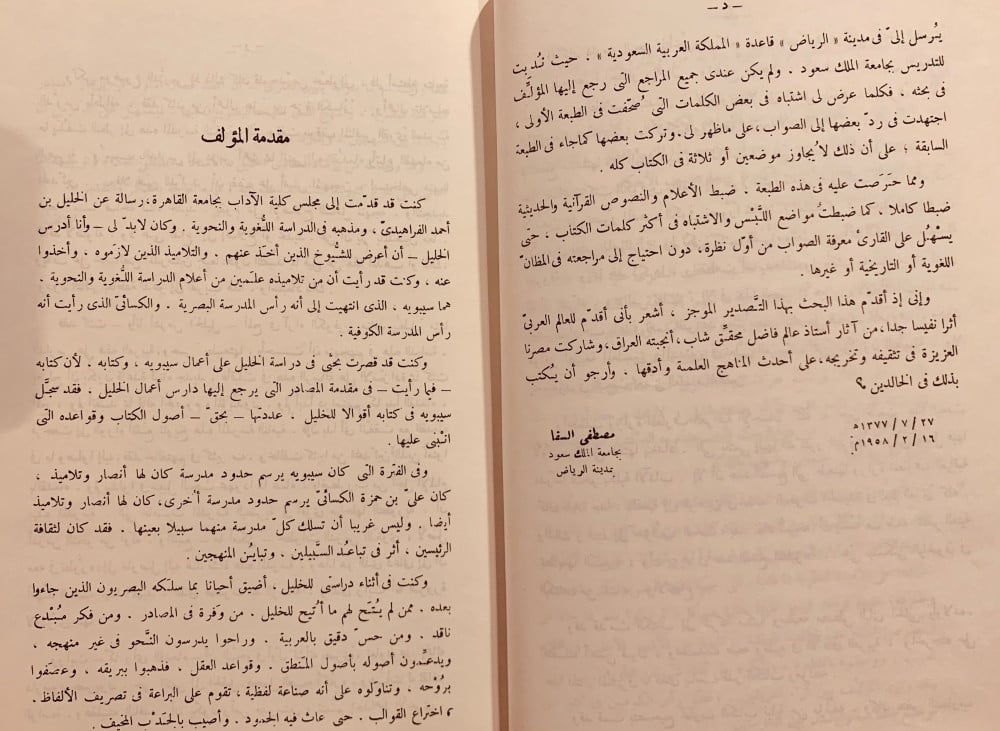 — د —
يُرسل إلىّ فى مدينة « الرياض » قاعدة « المملكة العربية السعودية » . حيث نُدبت
للتدريس بجامعة الملك سعود . ولم يكن عندى جميع المراجع التى رجع إليها المؤلِّف
فى بحثه . فكلما عرض لى اشتباه فى بعض الكلمات التى صُحّفت فى الطبعة الأولى ،
اجتهدت فى ردّ بعضها إلى الصواب،على ماظهر لى.وتركت بعضها كماجاء فى الطبعة
السابقة ؛ على أن ذلك لايجاوز موضعين أو ثلاثة فى الكتاب كله .
ومما حَرَصت عليه فى هذه الطبعة . ضبط الأعلام والنصوص القرآنية والحديثية
ضبطا كاملا ، كما ضبطتُ مواضع اللَّبْس والاشتباه فى أكثر كلمات الكتاب ، حتى
يسْهُل على القارئ معرفة الصواب من أوّل نظرة، دون احتياج إلى مراجعته فى المظانّ
اللغوية أو التاريخية أو غيرها .
وإنى إذ أقدّم هذا البحث بهذا التَّصدير الموجز ، أشعر بأنى أقدّم للعالم العربىّ
أثرا نفيسا جدا،من آثار أستاذ عالم فاضل محقِّق شاب،أنجبته العراق،وشاركت مصرنا
العزيزة فى تثقيفه وتخريجه،على أحدث المناهج العلمية وأدقها . وأرجو أن يُكتب
بذلك فى الخالدين ؟
مصطفى السقا
بجامعة الملك سعود
بمدينة الرياض
٢٧ / ٧ / ١٣٧٧ﻫ
١٦ / ٢ / ١٩٥٨م.
مقدمة المؤلف
كنت قد قدّمت إلى مجلس كلية الآداب بجامعة القاهرة،رسالة عن الخليل بن
أحمد الفراهيدىّ، ومذهبه فى الدراسة اللُّغوية والنحوية . وكان لابدّ لى — وأنا أدرس
الخليل — أن أعرض للشُّيوخ الذين أخذ عنهم . والتلاميذ الذين لازموه . وأخذوا
عنه ، وكنت قد رأيت أن من تلاميذه علَمين من أعلام الدراسة اللُّغوية والنحوية .
هما سيبويه ، الذى انتهيت إلى أنه رأس المدرسة البصرية . والكسائىّ الذى رأيت أنه
رأس المدرسة الكوفية .
وكنت قد قصرت بحثى فى دراسة الخليل على أعمال سيبويه ، وكتابه . لأن كتابه
— فيما رأيت — فى مقدمة المصادر التى يرجع إليها دارس أعمال الخليل . فقد سجَّل
سيبويه فى كتابه أقوالا للخليل . عددتها — بحقّ — أصول الكتاب وقواعده التى
انْبنى عليها .
وفى الفترة التى كان سيبويه يرسم حدود مدرسة كان لها أنصار وتلاميذ ،
كان علىّ بن حمزة الكسائىّ يرسم حدود مدرسة أُخرى،كان لها أنصار وتلاميذ
أيضا . وليس غريبا أن تسلك كلّ مدرسة منهما سبيلا بعينها . فقد كان لثقافة
الرئيسين ، أثر فى تباعُد السَّبيلين . وتبايُن المنهجين .
وكنت فى أثناء دراستى للخليل . أضيق أحيانا بما سلكه البصريون الذين جاءوا
بعده . ممن لم يُتَح لهم ما أُتيح للخليل . من وَفرة فى المصادر . ومن فكر مُبْتدع
ناقد . ومن حسّ دقيق بالعربية . وراحوا يدرسون النَّحو فى غير منهجه ،
ويدعِّمون أصوله بأصول المنطق . وقواعد العقل . فذهبوا ببريقه . وعصَفوا
برُوْحه . وتناولوه على أنه صناعة لفظية ، تقوم على البراعة فى تصريف الألفاظ .
اختراع القوالب . حتى عاث فيه الجمود . وأصيب بالجَدْب المخيف .